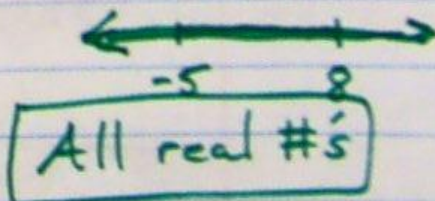 -5 8
All real #'s